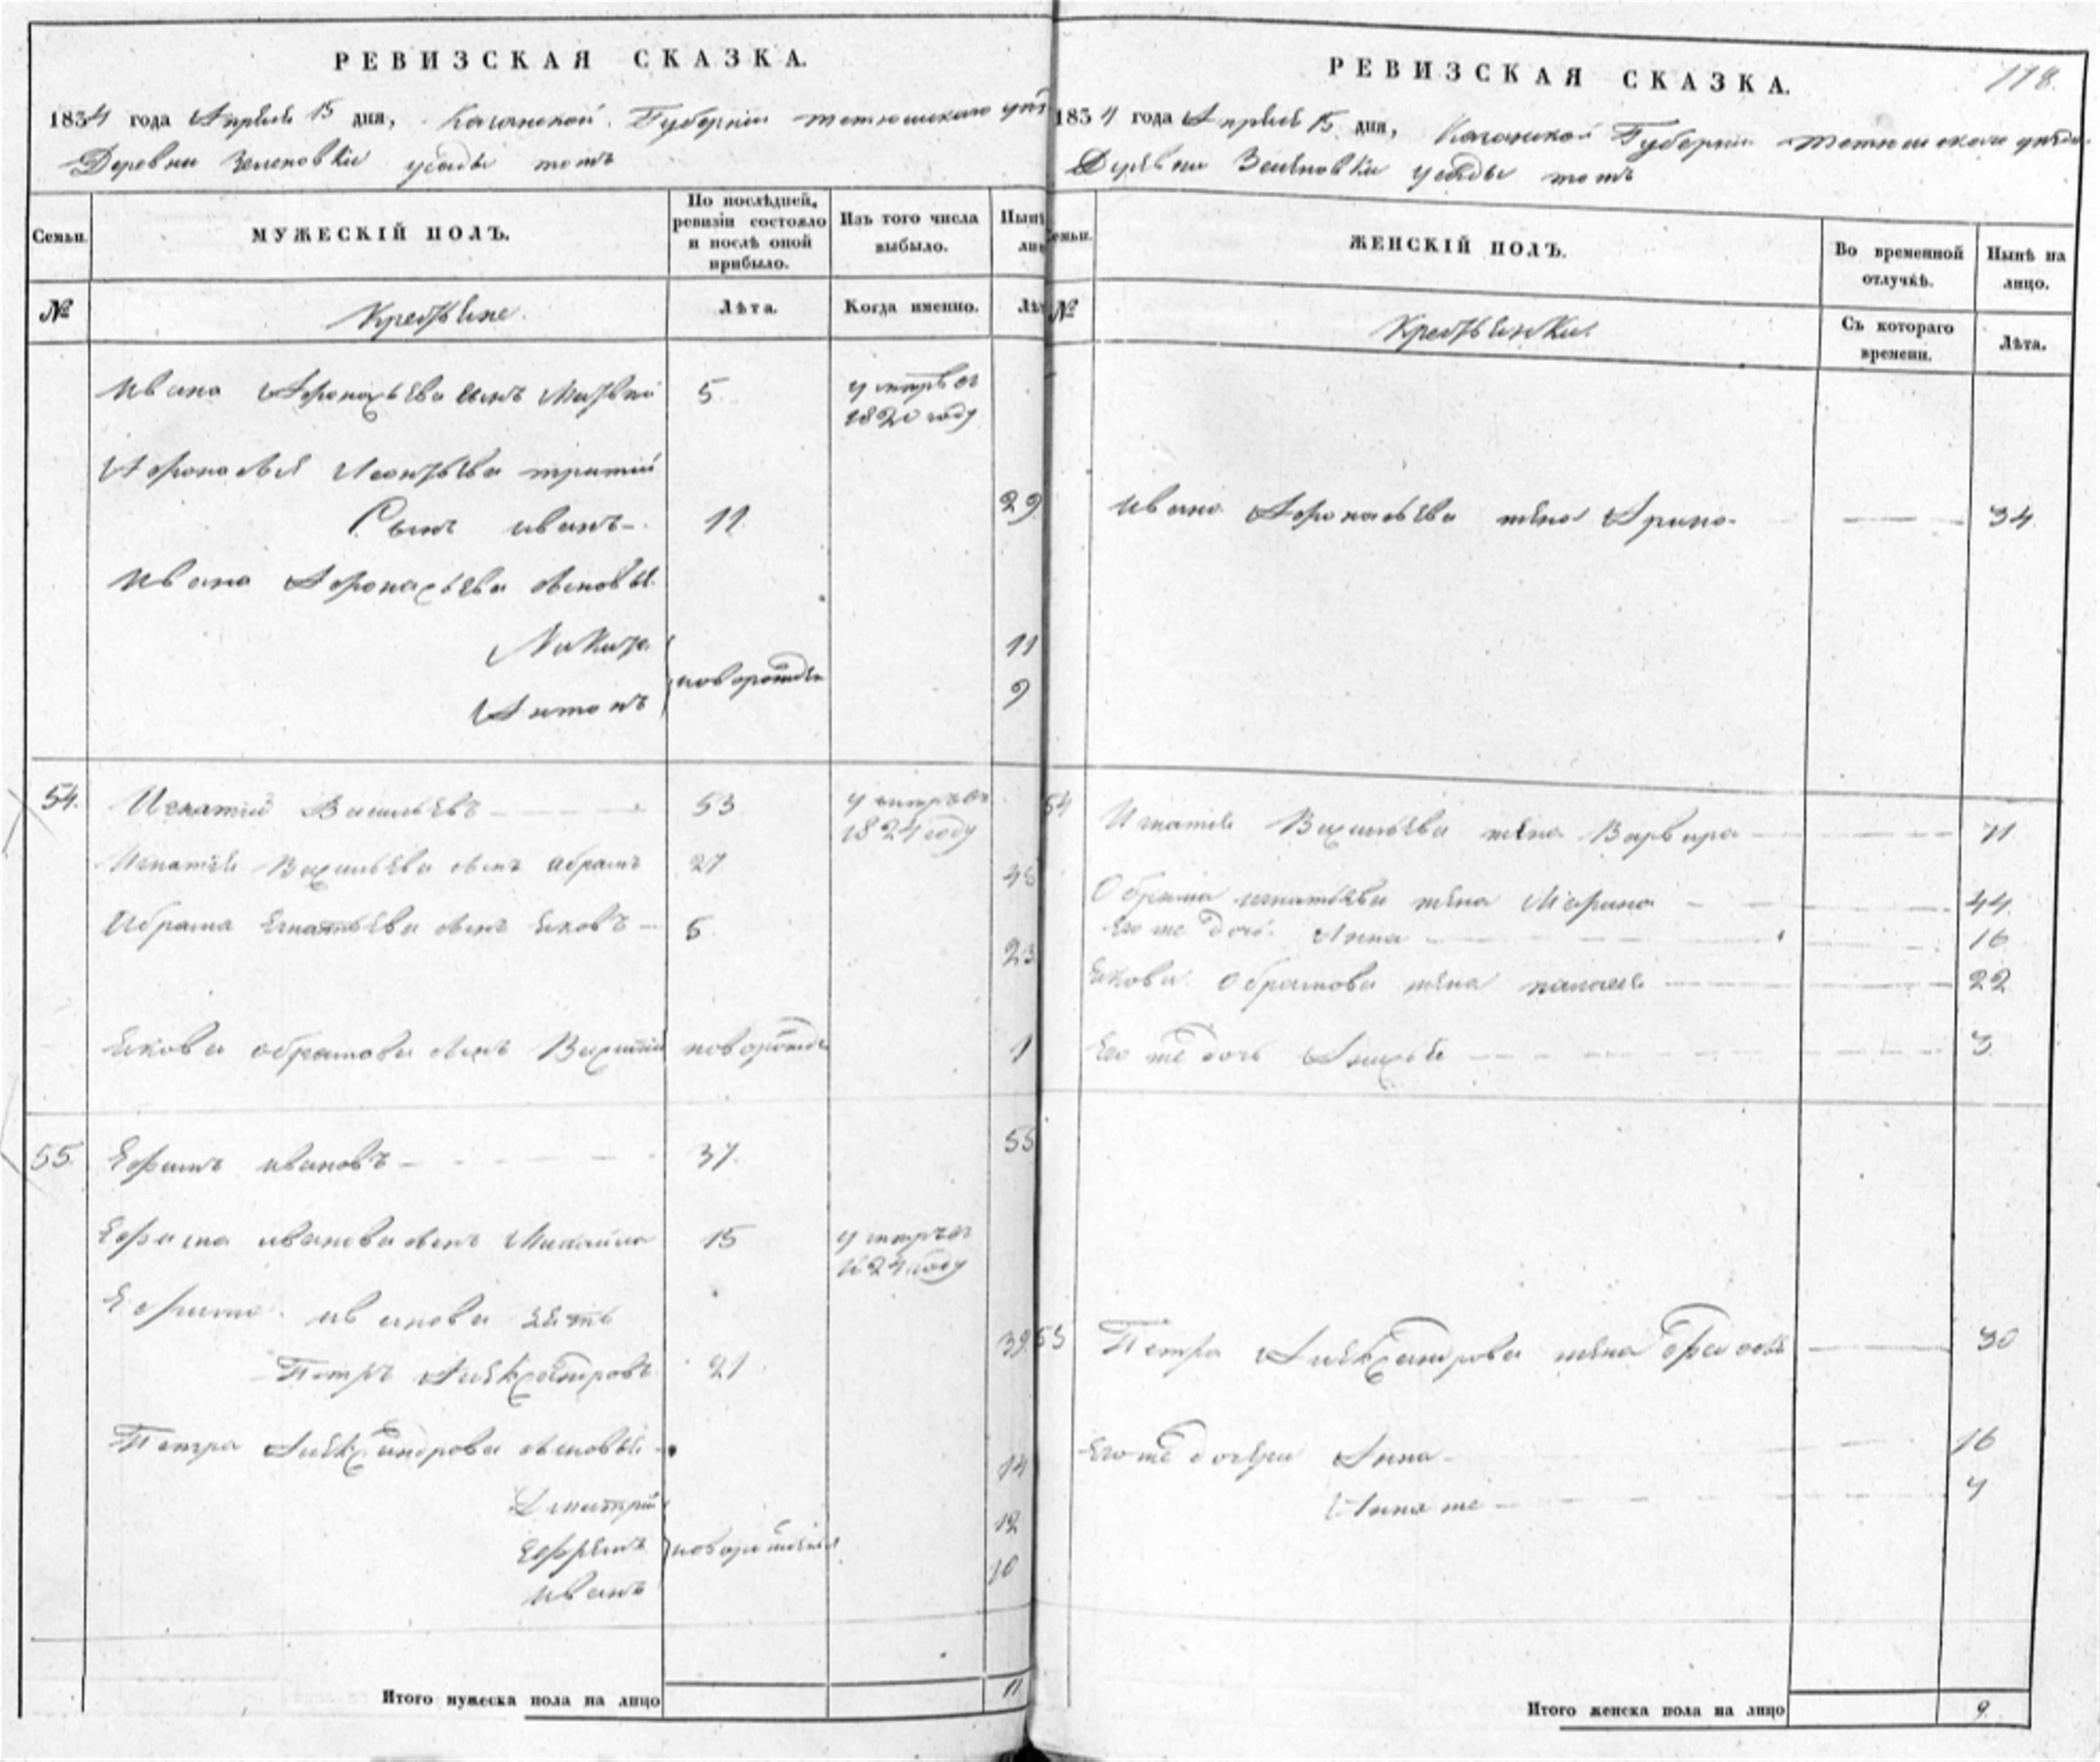 РЕВИЗСКАЯ СКАЗКА.
1834 года Апреля 15 дня, Казанской Губернии тетюшскаго
Деревни Зеленовки
Семьи.
МУЖЕСКІЙ ПОЛЪ.
По послѣдней, ревизіи состояло и послѣ оной прибыло.
Изъ того числа выбыло.
№
Крестьяне.
Лѣта.
Когда именно.
Ивана Афонасьева сынъ Матвей 5 умтре въ
1820 году
Афонасья Леонтьева третий
Сынъ иванъ 11 29
Ивана Афонасьева сыновья
Никита 11
новорожден
Антонъ 9
54. Игнатий Васильевъ 53 умтре въ
1824 году
Игнатья Васильева сынъ Абрамъ 27
Абрама Егнатьева сынъ Яковъ 23
Якова обрамова сынъ новорожде 1
55. Ефимъ ивановъ 37 55
Ефима иванова сынъ Михайла 15
1824 году
Ефима иванова зять
Петръ Александровъ 21
Петра Александрова сыновья
Дмитрий 14
Ефремъ 12
иванъ 10
Итого мужеска пола на лицо 11
РЕВИЗСКАЯ СКАЗКА. 118.
1834 года Апреля 15 дня, Казанской Губернии тетюшскаго
Деревни Зеленовки
ЖЕНСКІЙ ПОЛЪ.
Во временной отлучкѣ.
Нынѣ на лицо.
№
Крестьянки.
Съ котораго времени.
Лѣта.
Ивана Афонасьева жена Арина 34
54 Игнатья Васильева жена Варвара 71
Обрама игнатьева жена Марина 44
Его же дочь Анна 16
Якова Обрамова жена палагея 22
Его же дочь 3
55 Петра Александрова жена 30
Его же дочери Анна 16
Анна же
Итого женска пола на лицо 9.